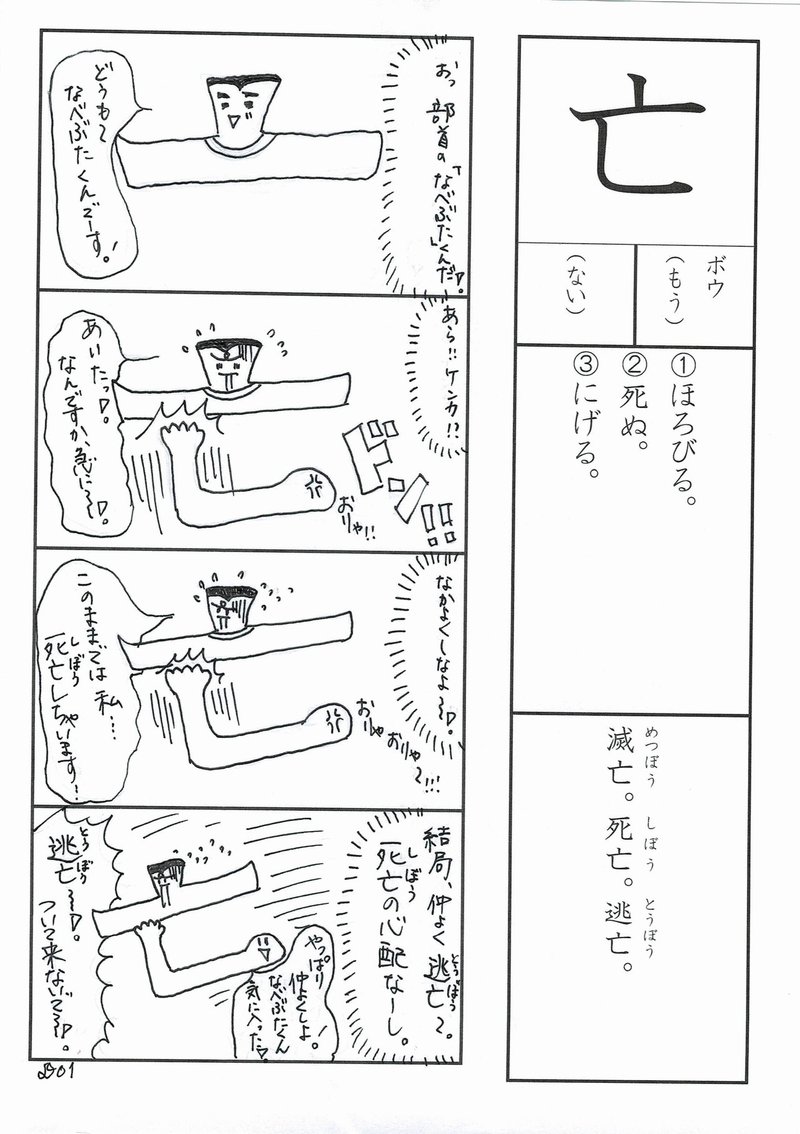 亡
ボウ
(もう)
(ない)
①ほろびる。
②死ぬ。
③にげる。
めつぼう しぼう とうぼう
滅亡。死亡。逃亡。
おっ 部首の「なべぶた」くんだ!
どうも〜
なべぶたくんでーす!
あら!!ケンカ!?
ドンッ!!
おりゃ!!
あいたっ!
なんですか、急に〜!
なかよくしなよ〜!
おりゃおりゃ〜!!!
このままでは私…
しぼう
死亡しちゃいます!
結局、仲よく逃亡〜。
とうぼう
しぼう
死亡の心配なーし。
やっぱり
仲よくしよ。
なべぶたくん
気に入った!
とうぼう
逃亡〜!
ついて来ないで〜!